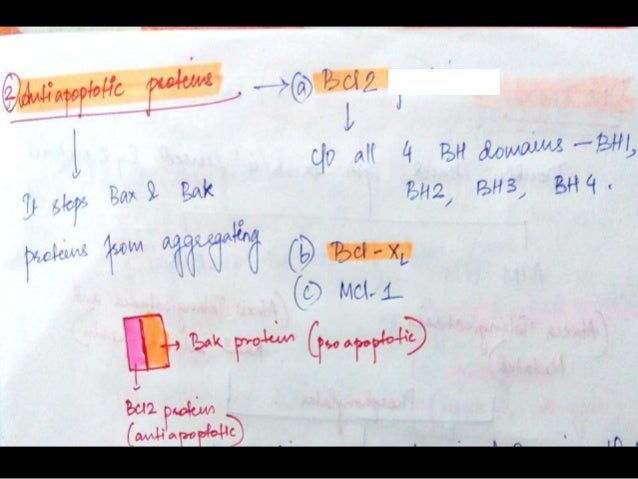 ② Antiapoptotic proteins → ⓐ Bcl2
↓
c/o all 4 BH domains — BH1,
BH2, BH3, BH4.
↓
It stops Bax & Bak
proteins from aggregating
ⓑ Bcl-XL
ⓒ Mcl-1
→ Bak protein (proapoptotic)
Bcl2 protein
(antiapoptotic)